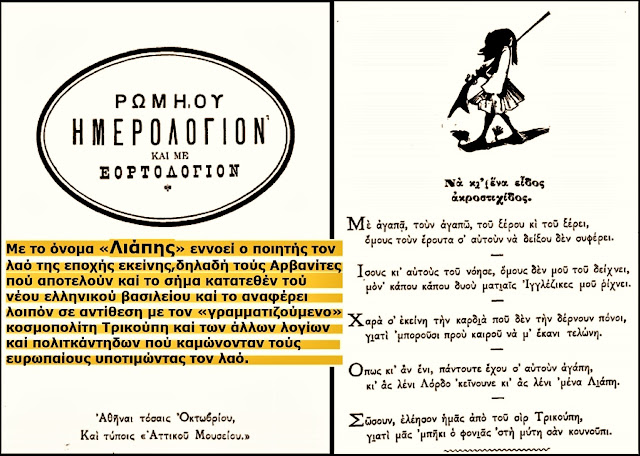 ΡΩΜΗ.ΟΥ
ΗΜΕΡΟΛΟΓΙΟΝ
ΚΑΙ ΜΕ
ΕΟΡΤΟΛΟΓΙΟΝ
Με το όνομα «Λιάπης» εννοεί ο ποιητής τον
λαό της εποχής εκείνης,δηλαδή τούς Αρβανίτες
πού αποτελούν καί το σήμα κατατεθέν τού
νέου ελληνικού βασιλείου καί το αναφέρει
λοιπόν σε αντίθεση με τον «γραμματιζούμενο»
κοσμοπολίτη Τρικούπη καί των άλλων λογίων
καί πολιτκάντηδων πού καμώνονταν τούς
ευρωπαίους υποτιμώντας τον λαό.
Ἀθῆναι τόσαις Ὀκτωβρίου,
Καὶ τύποις «Ἀττικοῦ Μουσείου.»
Νὰ κι' ἕνα εἶδος
ἀκροστιχίδος.
Μὲ ἀγαπᾷ, τοὺν ἀγαπῶ, τοῦ ξέρου κὶ τοῦ ξέρει,
ὅμους τοὺν ἔρουτα σ' αὐτοὺν νὰ δείξου δὲν συφέρει.
Ισους κι' αὐτοὺς τοῦ νόησε, ὅμους δὲν μοῦ τοῦ δείχνει,
μὸν' κάπου κάπου δυοὺ ματιαῖς Ἰγγλέζικες μοῦ ῥίχνει.
Χαρὰ σ' ἐκείνη τὴν καρδιὰ ποῦ δὲν τὴν δέρνουν πόνοι,
γιατὶ 'μποροῦσι προὺ καιροῦ νὰ μ' ἔκανι τελώνη.
Οπως κι' ἂν ἐνι, πάντουτε ἔχου σ' αὐτοὺν ἀγάπη,
κι' ἂς λένι Λόρδο 'κεῖνουνε κι' ἂς λένι 'μένα Λιάπη.
Σώσουν, ἐλέησον ἡμᾶς ἀπὸ τοῦ σὶρ Τρικούπη,
γιατὶ μᾶς 'μπῆκι ὁ φονιᾶς 'στὴ μύτη σὰν κουνοῦπι.